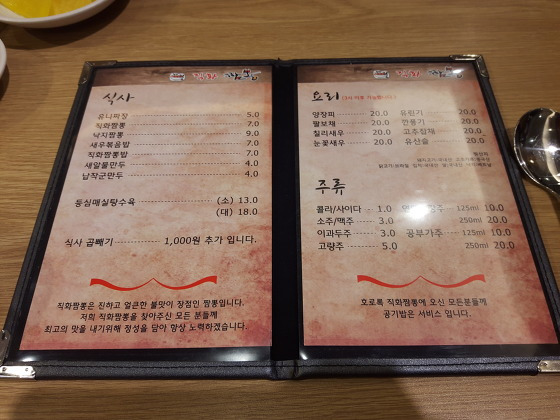 식사
유니짜장 5.0
직화짬뽕 7.0
낙지짬뽕 9.0
새우볶음밥 7.0
직화짬뽕밥 7.0
새알물만두 4.0
납작군만두 4.0
등심매실탕수육 (소) 13.0
(대) 18.0
식사 곱빼기 1,000원 추가 입니다.
직화짬뽕은 진하고 얼큰한 불맛이 장점인 짬뽕입니다.
저희 직화짬뽕을 찾아주신 모든 분들께
최고의 맛을 내기위해 정성을 담아 항상 노력하겠습니다.
요리
양장피 20.0 유린기 20.0
팔보채 20.0 깐풍기 20.0
칠리새우 20.0 고추잡채 20.0
눈꽃새우 20.0 유산슬 20.0
주류
콜라/사이다 1.0 125ml 10.0
소주/맥주 3.0 250ml 20.0
이과두주 3.0 공부가주 125ml 10.0
고량주 5.0 250ml 20.0
호로록 직화짬뽕에 오신 모든분들께
공기밥은 서비스 입니다.